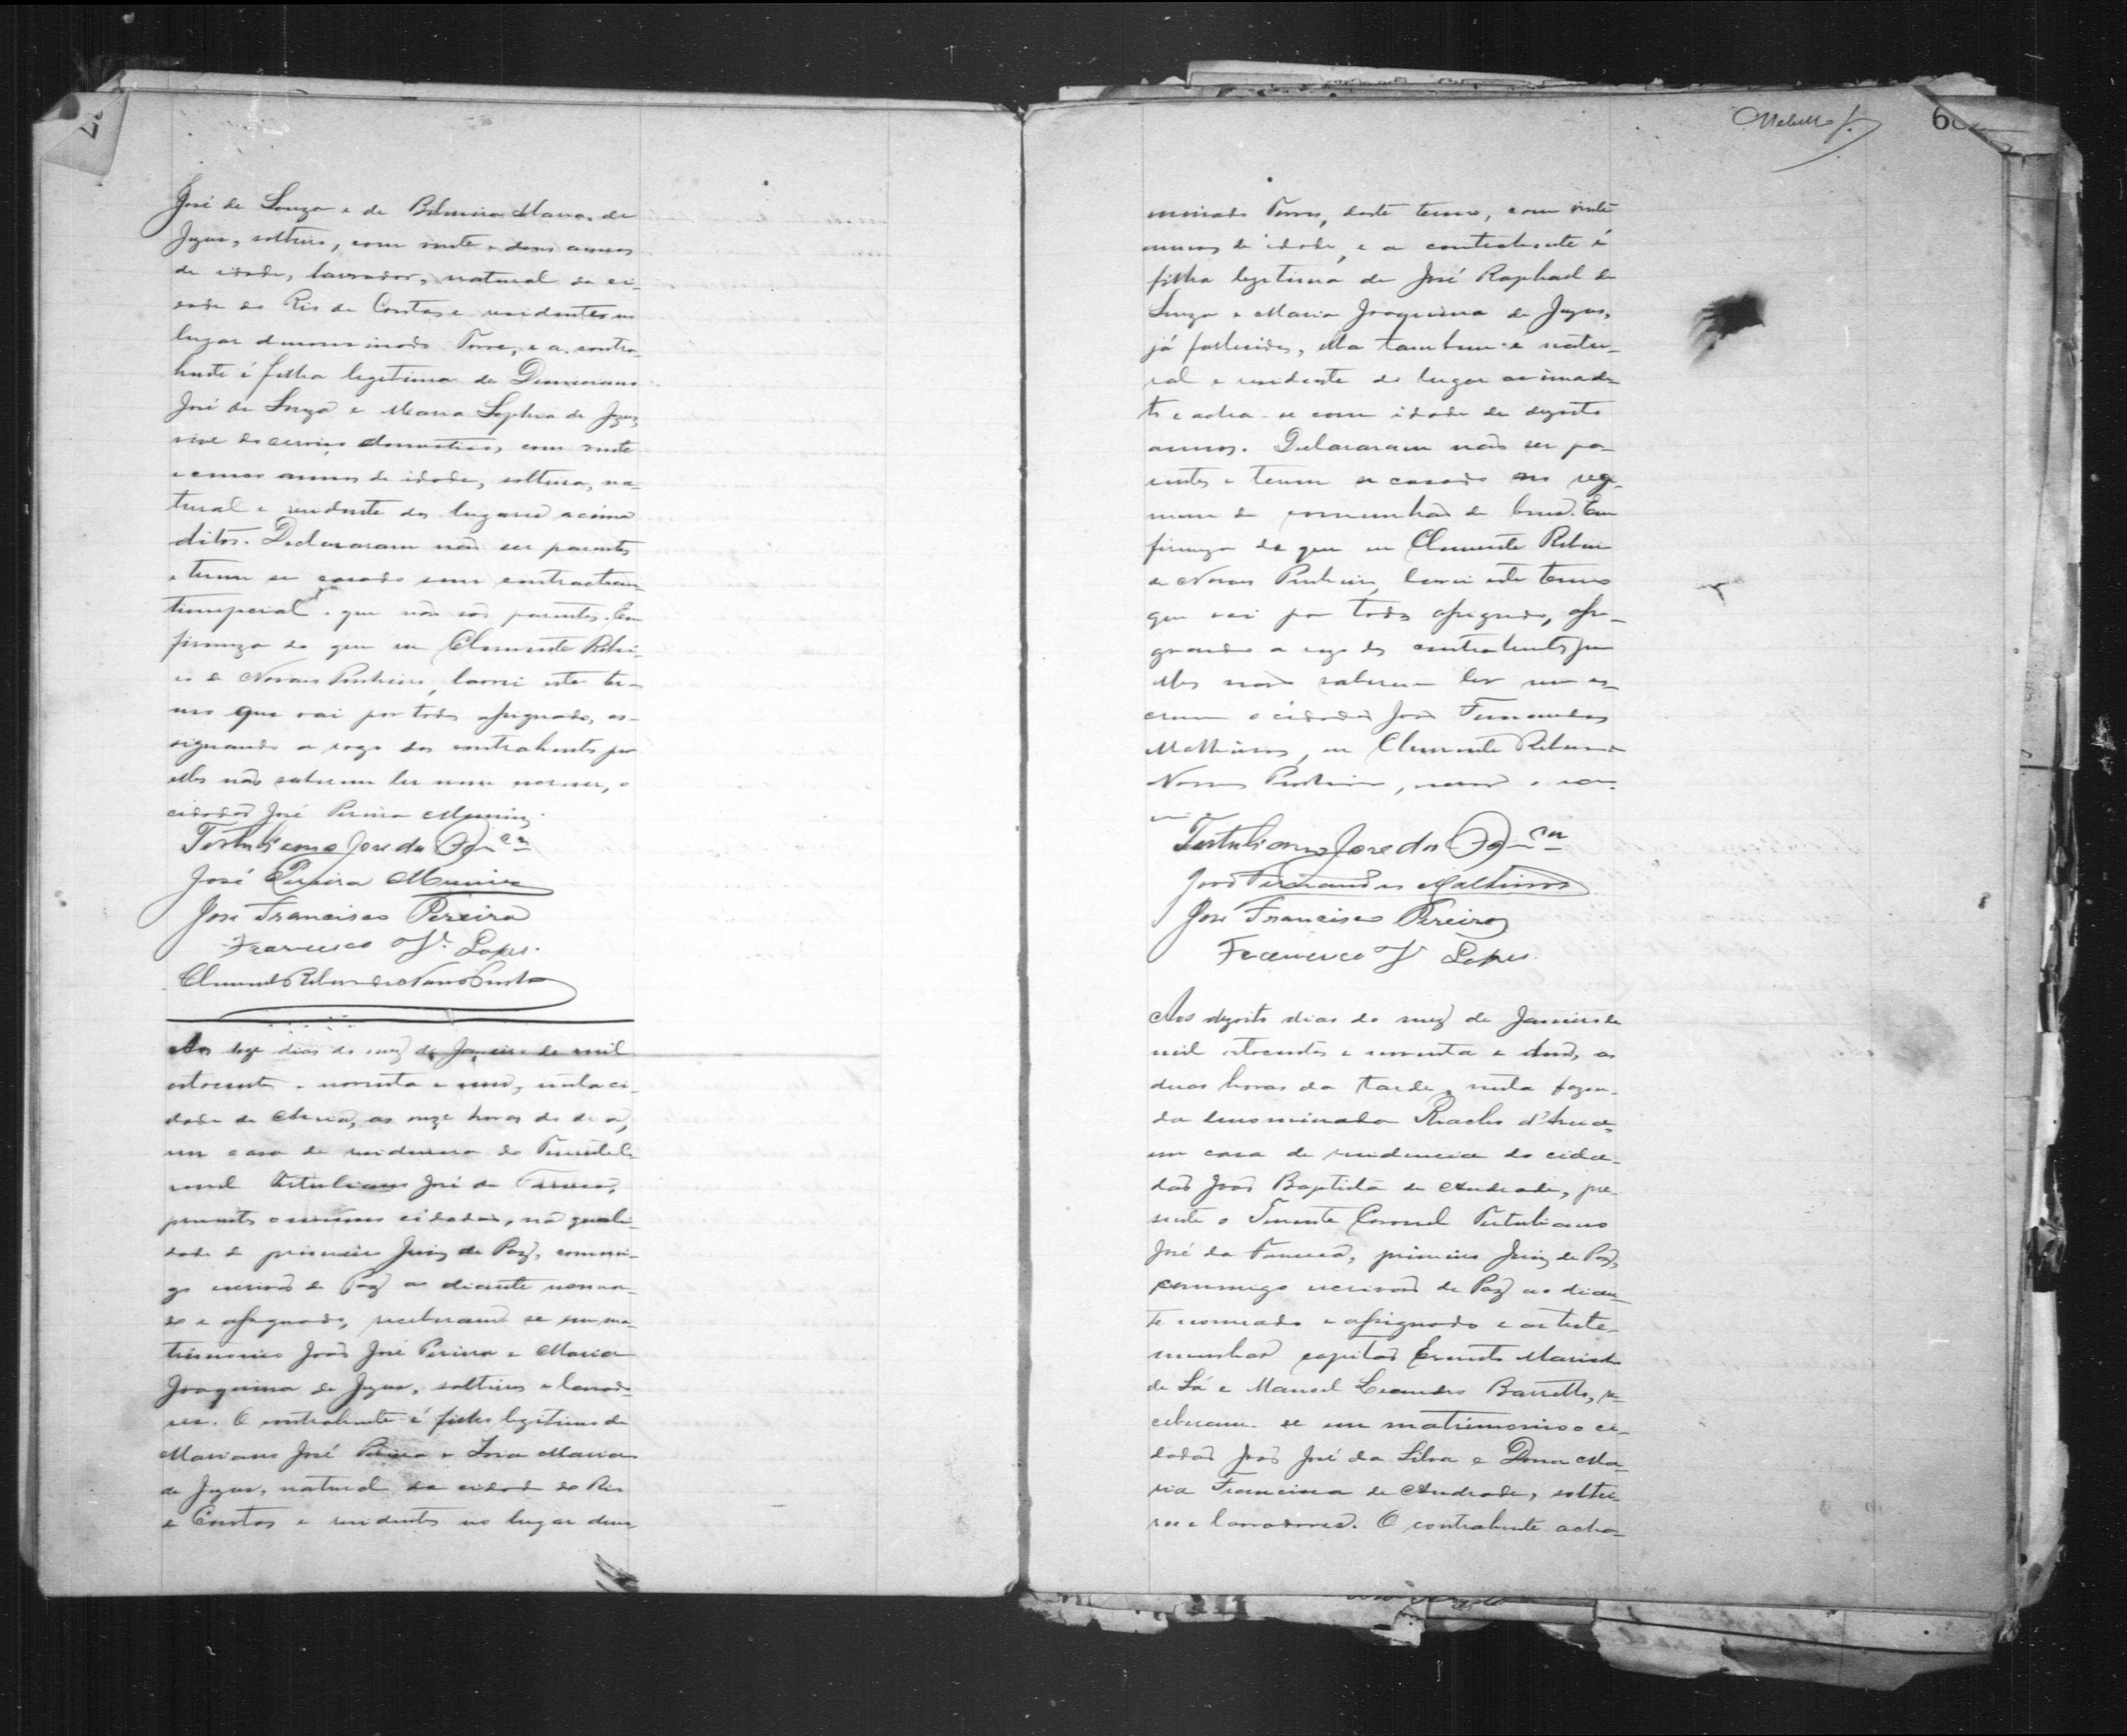 José de Souza e de Maria de
Jezus, solteiro, com vinte e dous annos
de idade, lavrador, natural da ci-
dade do Rio de Contas e residentes no
lugar denominado Torre, e a contra-
hente é filha legitima de Damiano
José de Souza e Maria Sophia de Jezus,
vive de serviço domestico, com vinte
e cinco annos de idade, solteira, na-
tural e residente dos lugares acima
ditos. Declararam não ser parentes
e terem se casado sem contracto an-
tinupcial e que não são parentes. Em
firmeza do que eu Clemente Ribei-
ro de Novaes Pinheiro, lavrei este ter-
mo que vai por todos assignado, as-
signando a rogo dos contrahentes por
elles não saberem ler nem escrever, o
cidadão José Pereira Muniz.
Tertuliano José da Fonca
José Pereira Muniz
José Francisco Pereira
Francisco Lopes.
Clemente Ribeiro de Novaes Pinheiro
Aos doze dias do mez de Janeiro de mil
oitocentos e noventa e um, nesta ci-
dade de as onze horas do dia,
em casa de residencia do Tenente Co-
ronel Tertuliano José da Fonseca,
presente o mesmo cidadão, na quali-
dade de primeiro Juiz de Paz, commi-
go escrivão de Paz ao diante nomea-
do e assignado, receberam se em ma-
trimonio João José Pereira e Maria
Joaquina de Jezus, solteiros e lavrado-
res. O contrahente é filho legitimo de
Mariano José Pereira e Maria
de Jezus, natural da cidade do Rio
de Contas e residentes no lugar deno-
68
minado Torre, deste termo, com vinte
annos de idade, e a contrahente é
filha legitima de José Raphael de
Souza e Maria Joaquina de Jezus,
já fallecidos, ella tambem é natu-
ral e residente do lugar acima di-
to e acha-se com idade de dezoito
annos. Declararam não ser pa-
rentes e terem se casado no regi-
men de comunhão de bens. Em
firmeza do que eu Clemente Ribeiro
de Novaes Pinheiro, lavrei este termo
que vai por todos assignado, assi-
gnando a rogo dos contrahentes por
elles não saberem ler nem es-
crever o cidadão João Fernandes
Mathinos, eu Clemente Ribeiro de
Novaes Pinheiro, escrivão o escre-
vi.
Tertuliano José da Fonca
João Fernandes Mathinos
José Francisco Pereira
Francisco Lopes
Aos dezoito dias do mez de Janeiro de
mil oitocentos e noventa e um, as
duas horas da tarde, nesta fazen-
da denominada Riacho d'Area,
em casa de residencia do cida-
dão João Baptista de Andrade, pre-
sente o Tenente Coronel Tertuliano
José da Fonseca, primeiro Juiz de Paz,
commigo escrivão de Paz ao dian-
te nomeado e assignado e as teste-
munhas capitão Ernesto
de Sá e Manoel Leandro Barretto, re-
ceberam-se em matrimonio o ci-
dadão João José da Silva e Dona Ma-
ria Francisca de Andrade, soltei-
ros e lavradores. O contrahente acha-